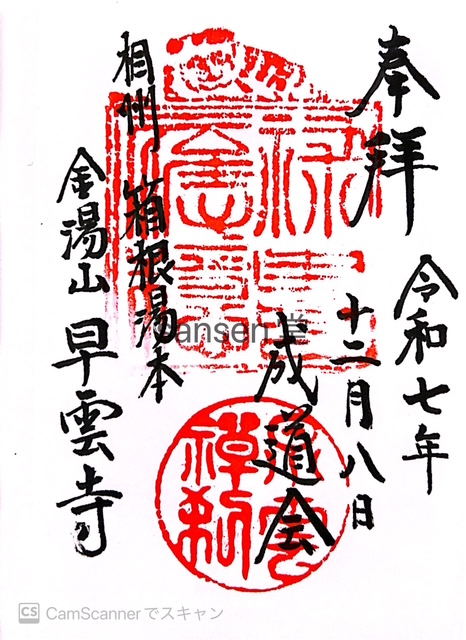 奉拝
令和七年
十二月八日
成道会
相州 箱根湯本
金湯山 早雲寺
Jansen 堂
CS CamScannerでスキャン